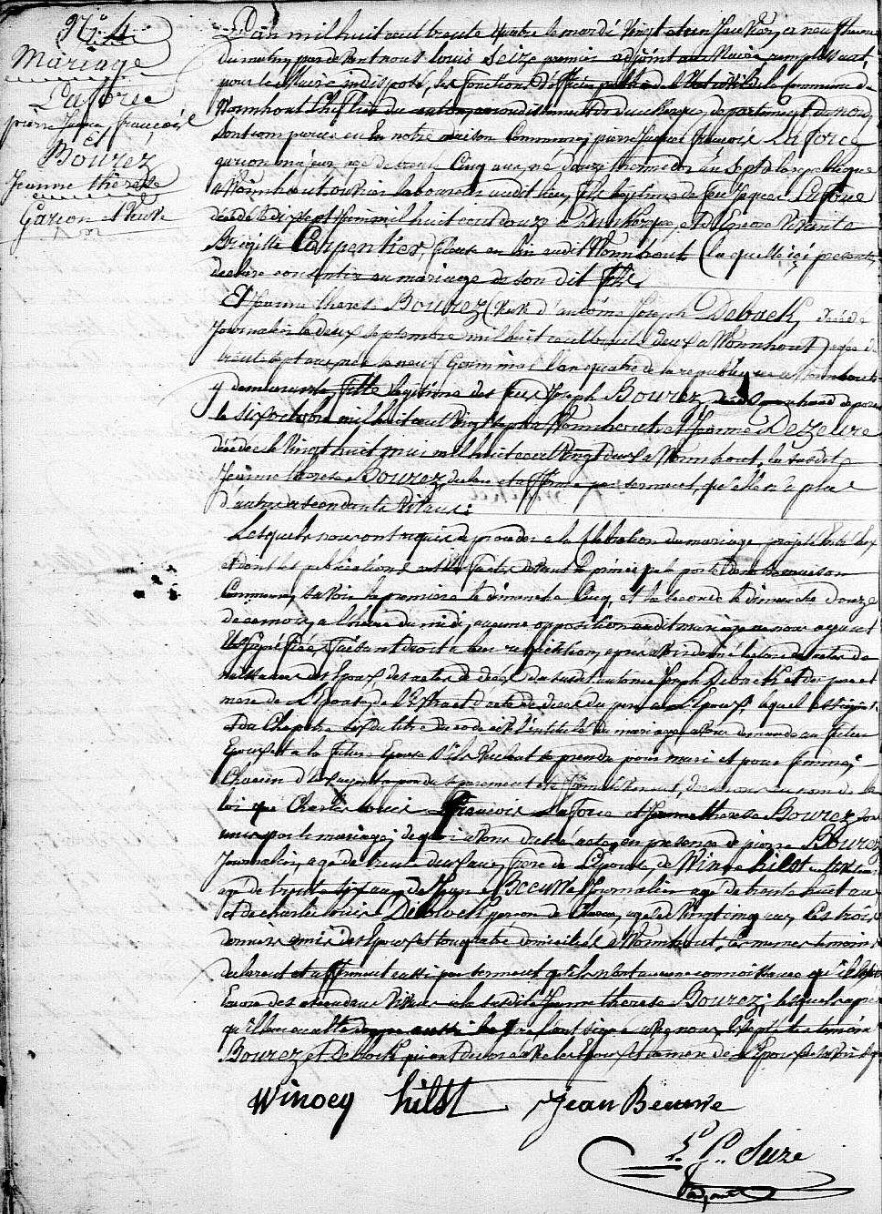 N.° 4
Mariage
Laforce
pierre Jacque françois
Et
Bourez
Jeanne thérèse
Garcon et Veuve
L'an mil huit cent trente quatre le mardi Vingt et un Janvier, a neuf heures
du matin, pardevant nous louis Seize premier adjoint au Maire remplissant
pour le Maire indisposé, les fonctions d'officier public de l'état civil de la Commune de
Wormhout Chef lieu du canton, arrondissement de Dunkerque, departement du nord
sont comparus en la notre maison Commune, pierre Jacque françois Laforce
garçon majeur, agé de trente Cinq ans, né douze thermidor an sept de la republique
a Wormhout, ouvrier laboureur audit lieu, fils legitime de feu Jaque Laforce
décédé dix sept Juin mil huit cent douze a Dunkerque, et d'Encore Vivante
Brigitte Carpentier, audit Wormhout (laquelle ici presente,
declare consentir au mariage de son dit fils
Et Jeanne therese Bourez (Veuve d'antoine Joseph Deback, décédé
Journalier le deux septembre mil huit cent trente deux a Wormhout) agée de
trente sept ans, née le neuf Germinal l'an quatre de la republique a Wormhout
y demeurante, fille legitime des feus Joseph Bourez, marchand de porc
le six octobre mil huit cent Vingt a Wormhout, et Jeanne Dezeure
décédée le Vingt huit mai mil huit cent Vingt deux a Wormhout, la susdite
Jeanne therese Bourez, declare et affirme par serment, qu'elle n'a plus
d'autres ascendants Vivans.
Lesquels nous ont requis de proceder a la celebration du mariage projeté entre eux
et dont les publications ont été faites devant la principale porte de notre maison
Commune, savoir la premiere le dimanche Cinq, et la seconde le dimanche douze
de ce mois, a l'heure du midi, aucune opposition audit mariage ne nous ayant
été signifiée, faisant droit a leur requisition, apres avoir donné lecture des actes de
naissances des Epoux, des actes de décès du susdit antoine Joseph Deback et des pere et
mere de l'Epouse, de l'Extrait d'acte de deces du pere de l'Epoux,
et du Chapitre six du titre du code civil intitulé du mariage, avons demandé au futur
Epoux et a la future Epouse s'ils Veulent se prendre pour mari et pour femme,
Chacun d'eux ayant repondu separement et affirmativement, declarons au nom de la
loi que Charles louis François Laforce et Jeanne therese Bourez sont
unis par le mariage; de quoi avons dressé acte, en presence de pierre Bourez
Journalier, agé de trente deux ans, frere de l'Epouse, de Winoc hilst
agé de trente six ans, de Jean Beeuwe Journalier agé de trente huit ans
et de charles louis Deblock, garcon de agé de Vingt cinq ans, les trois
derniers amis des Epoux et tous quatre domiciliés a Wormhout, les memes temoins
declarent et affirment aussi par serment qu'ils n'ont aucune connoissance qu'il existe
Encore des ascendans Vivans a la susdite Jeanne therese Bourez; lesquels apres
qu'il leur en a été donné aussi lecture l'ont signé avec nous, excepté les temoins
Bourez et Deblock qui ont declaré avec les Epoux et la mere de l'Epoux
Winocq hilst Jean Beeuwe
L. F. Seize
adjoint